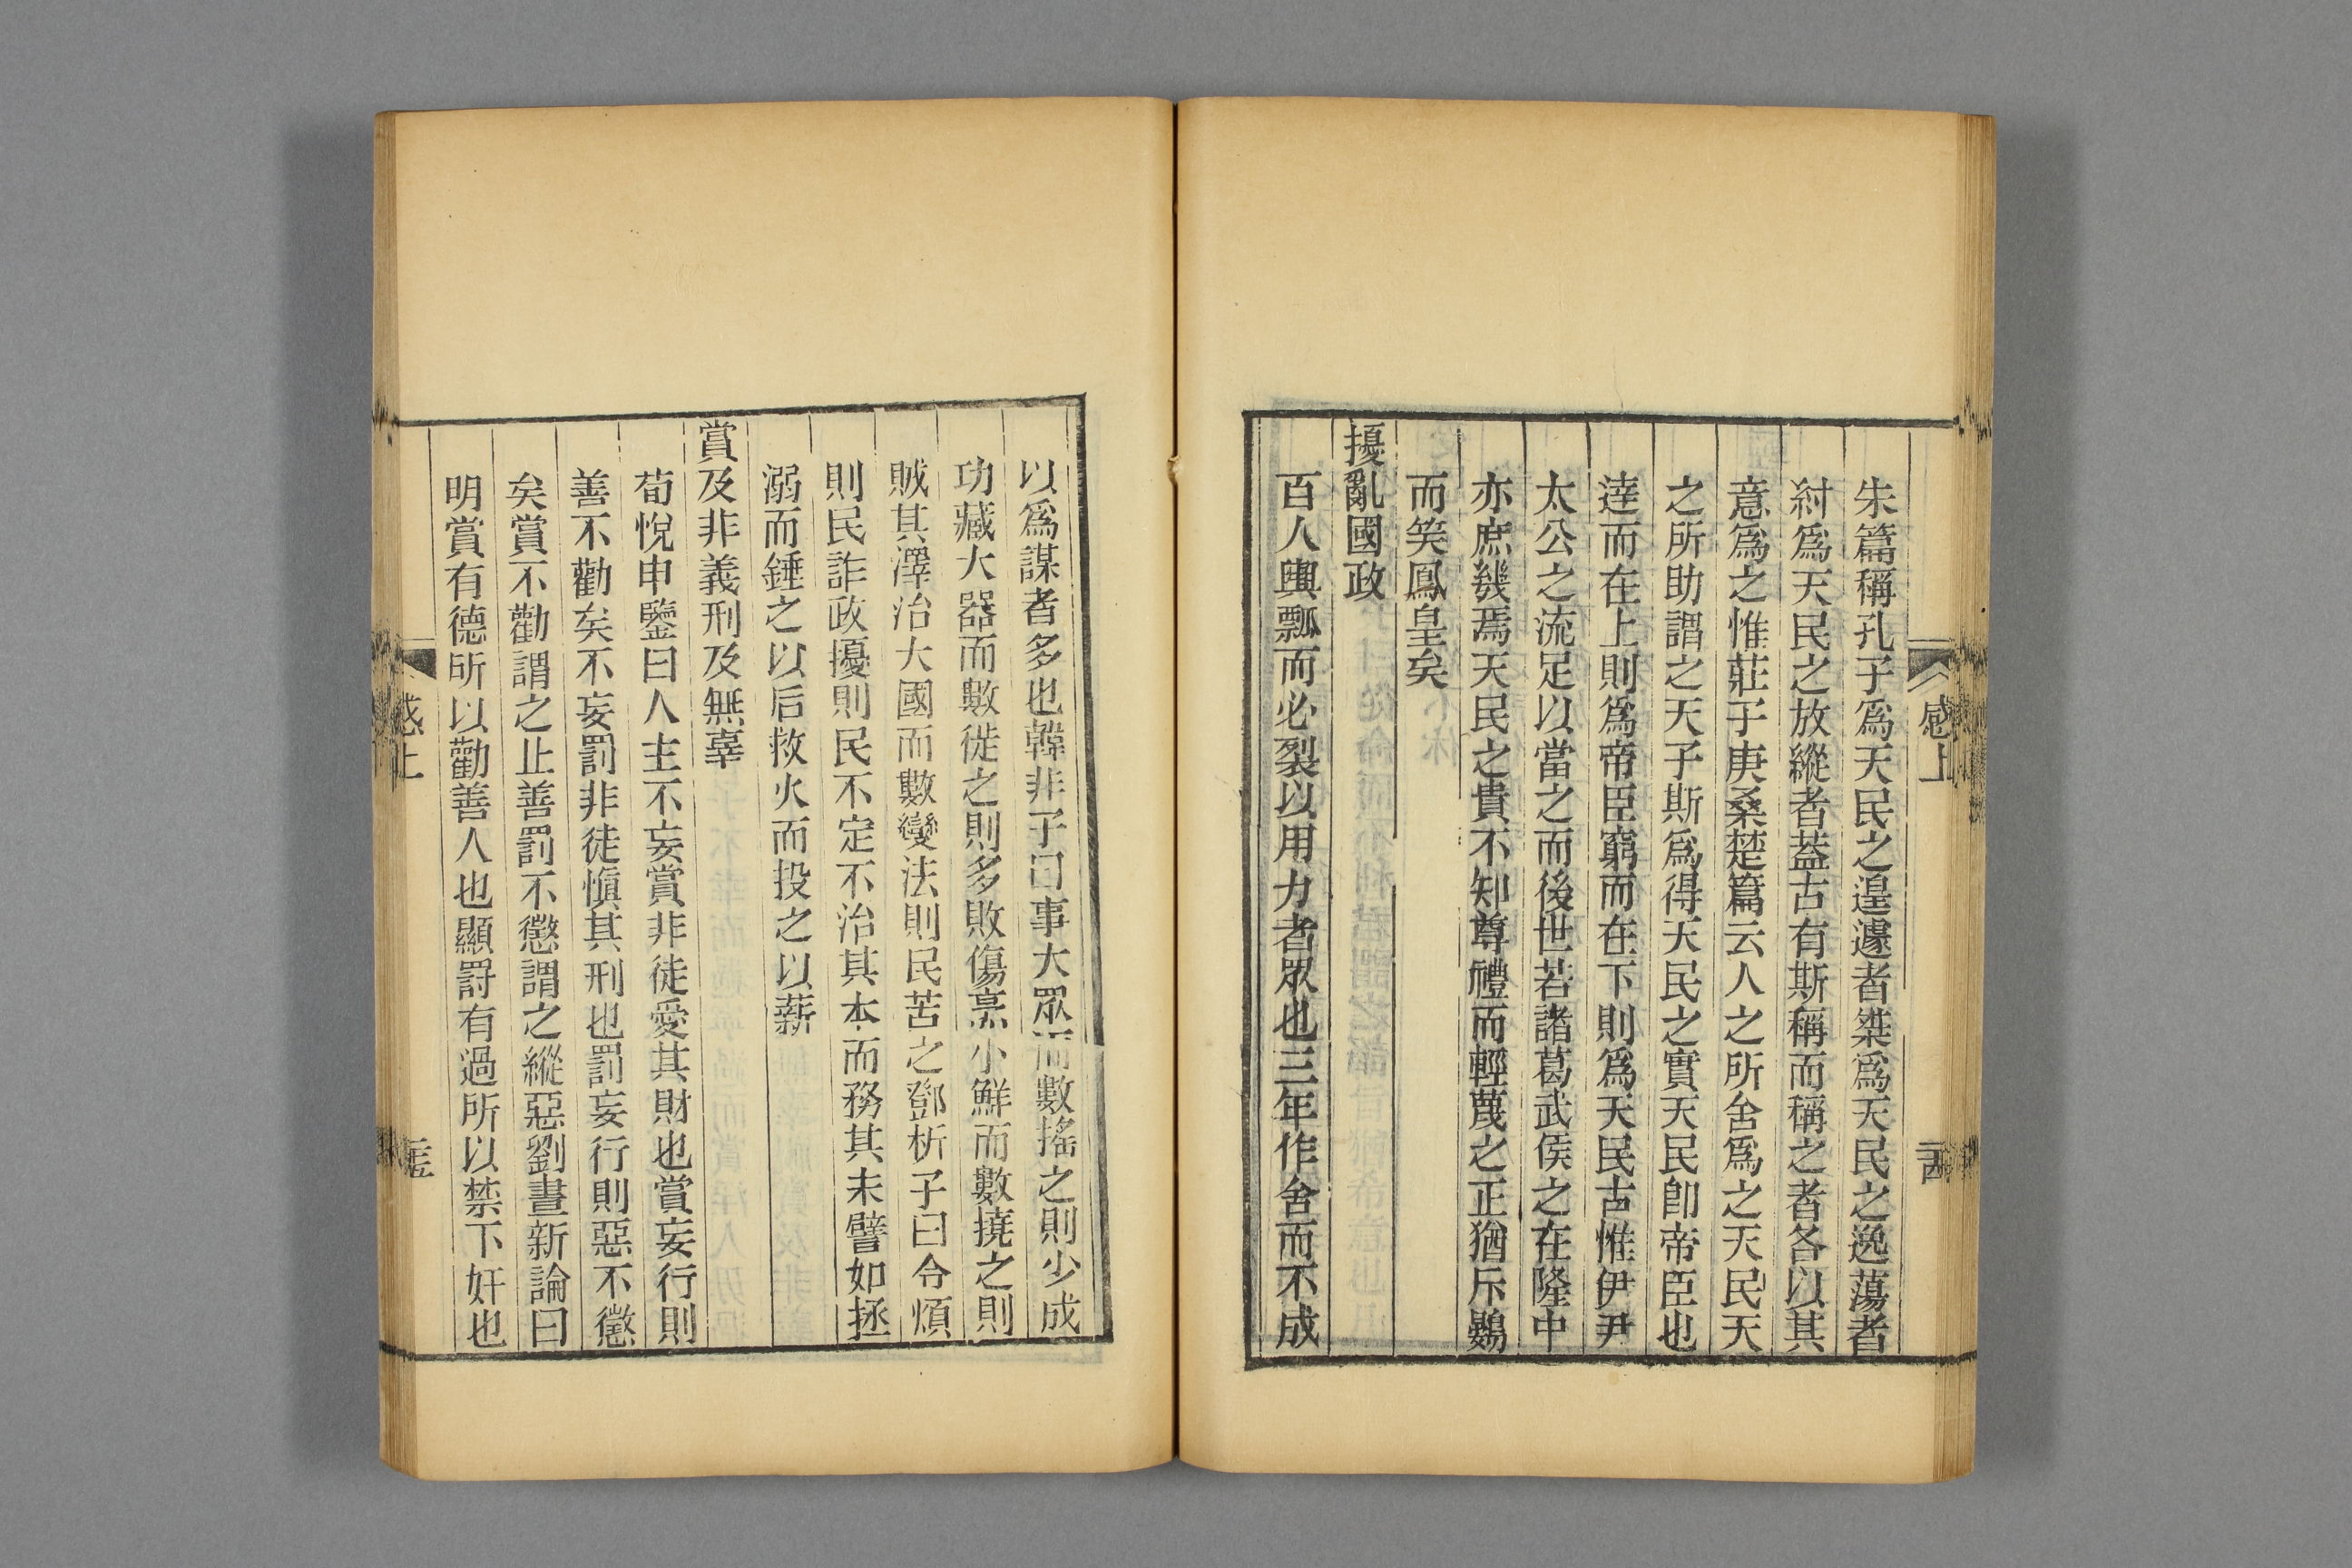 感上
朱篇稱孔子爲天民之遑遽者桀爲天民之逸蕩者
紂爲天民之放縱者葢古有斯稱而稱之者各以其
意爲之惟莊子庚桑楚篇云人之所舍爲之天民天
之所助謂之天子斯爲得天民之實天民卽帝臣也
達而在上則爲帝臣窮而在下則爲天民古惟伊尹
太公之流足以當之而後世若諸葛武侯之在隆中
亦庶幾焉天民之貴不知尊禮而輕蔑之正猶斥鷃
而笑鳳皇矣
擾亂國政
百人輿瓢而必裂以用力者眾也三年作舍而不成
以爲謀者多也韓非子曰事大眾而數搖之則少成
功藏大器而數徙之則多敗傷烹小鮮而數撓之則
賊其澤治大國而數變法則民苦之鄧析子曰令煩
則民詐政擾則民不定不治其本而務其末譬如拯
溺而錘之以后救火而投之以薪
賞及非義刑及無辜
荀悅申鑒曰人主不妄賞非徒愛其財也賞妄行則
善不勸矣不妄罰非徒愼其刑也罰妄行則惡不懲
矣賞不勸謂之止善罰不懲謂之縱惡劉晝新論曰
明賞有德所以勸善人也顯罸有過所以禁下奸也
感上